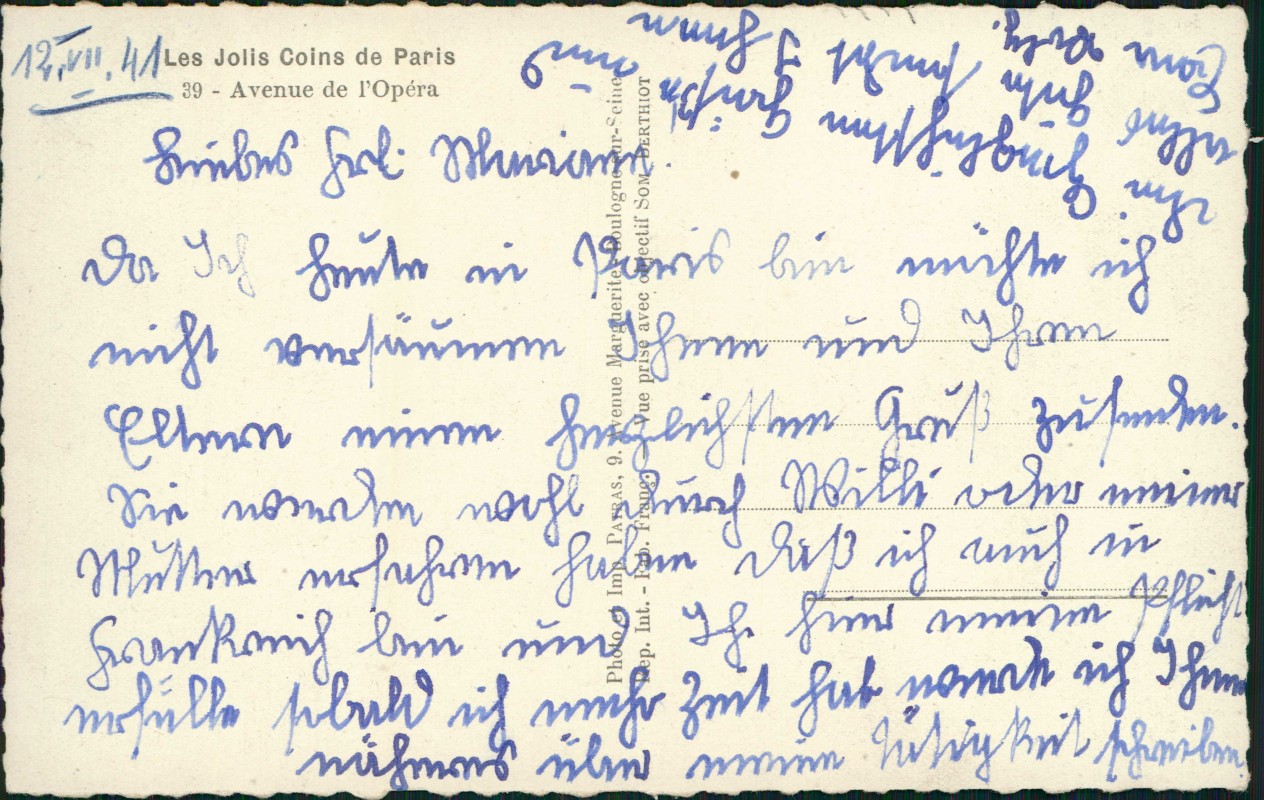 12.VII.41
Les Jolis Coins de Paris
39 - Avenue de l'Opéra
Photo et Imp. PATRAS, 9. Avenue Marguerite Boulogne-sur-Seine
Dep. Int. - Fab. Franç. - Vue prise avec objectif SOM BERTHIOT
Liebes Frl. Mariann.
Da Ich heute in Paris bin möchte ich
nicht versäumen Ihnen und Ihren
Eltern einen herzlichsten Gruß zusenden.
Sie werden wohl durch Willi oder meiner
Mutter erfahren haben daß ich auch in
Frankreich bin und Ich hier meine Pflicht
erfülle sobald ich mehr Zeit hab werde ich Ihnen
näheres über meine Tätigkeit schreiben.
herzlichsten Grüßen
gute wünscht Ihnen